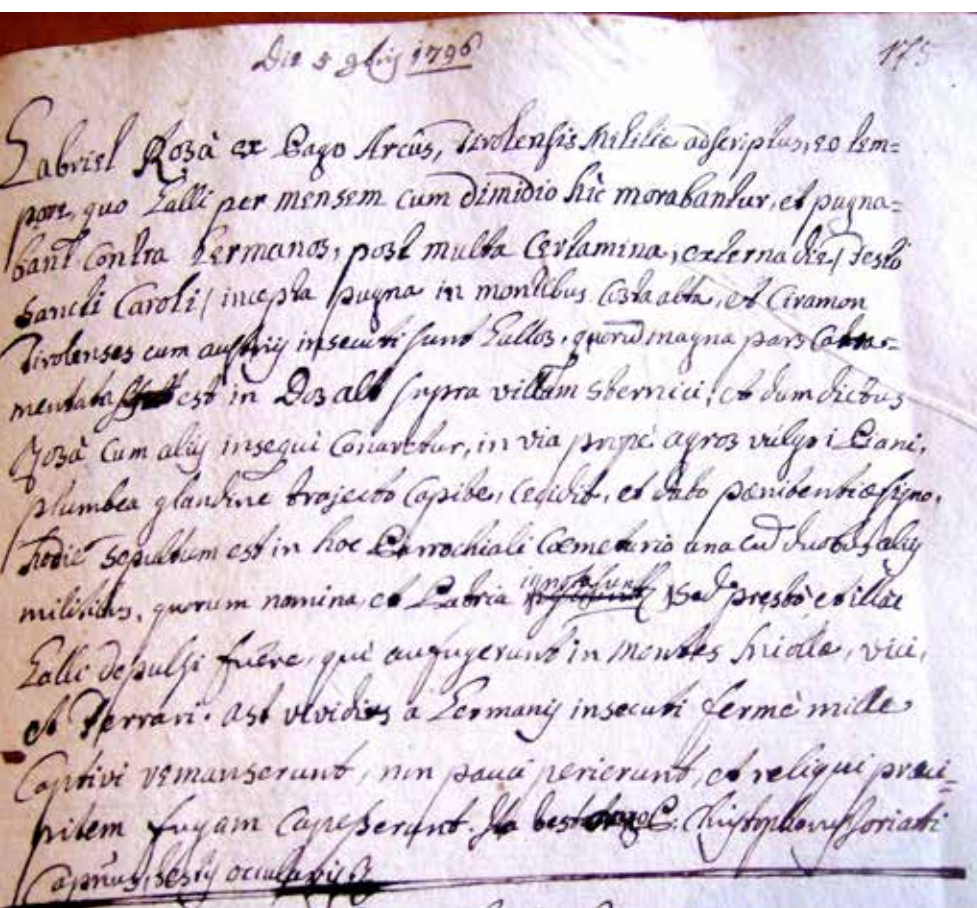 Die 5 9bris 1796
175
Gabriel Rosà ex Pago Arcûs, Tirolensis Militiæ adscriptus, eo tem=
pore, quo Galli per mensem cum dimidio hìc morabantur, et pugna=
bant contra Germanos, post multa certamina, externa die / Festo
Sancti Caroli / incepta pugna in montibus Costa alta, et Ciramon
Tirolenses cum austrijs insecuti sunt Gallos, quorum magna pars
mentata est in Dos alt supra villam Sternici; et dum dictus
Rosà cum alijs insequi conaretur, in via propè agros vulgo i Piani,
plumbea glandine trajecto capite, cecidit, et dato pænitentiæ signo,
hodie sepultum est in hoc Parrochiali Cœmeterio una cum duobus alijs
militibus, quorum nomina, et Patria ignota sunt / sed prestò et illac
Galli depulsi fuêre, qui aufugerunt in Montes Miolla, vici,
et Ferrari. Ast vividiùs a Germanis insecuti fermè mille
Captivi remanserunt, non pauci perierunt, et reliqui præci=
pitem fugam capesserunt. Ita testor P. Christophorus Soriatti
Capnus, testis occularis